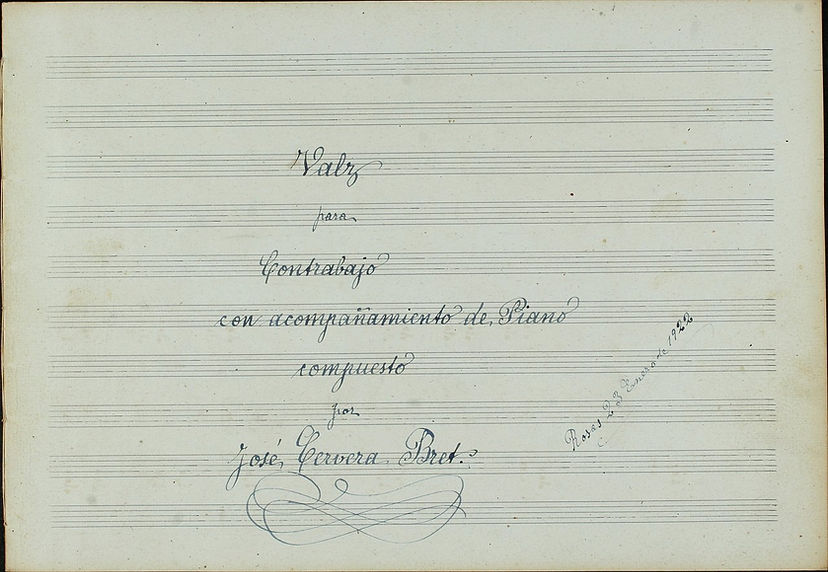 Valz
para
Contrabajo
con acompañamiento de Piano
compuesto
por
José Cervera Bret.
Rosas 23 Enero de 1922